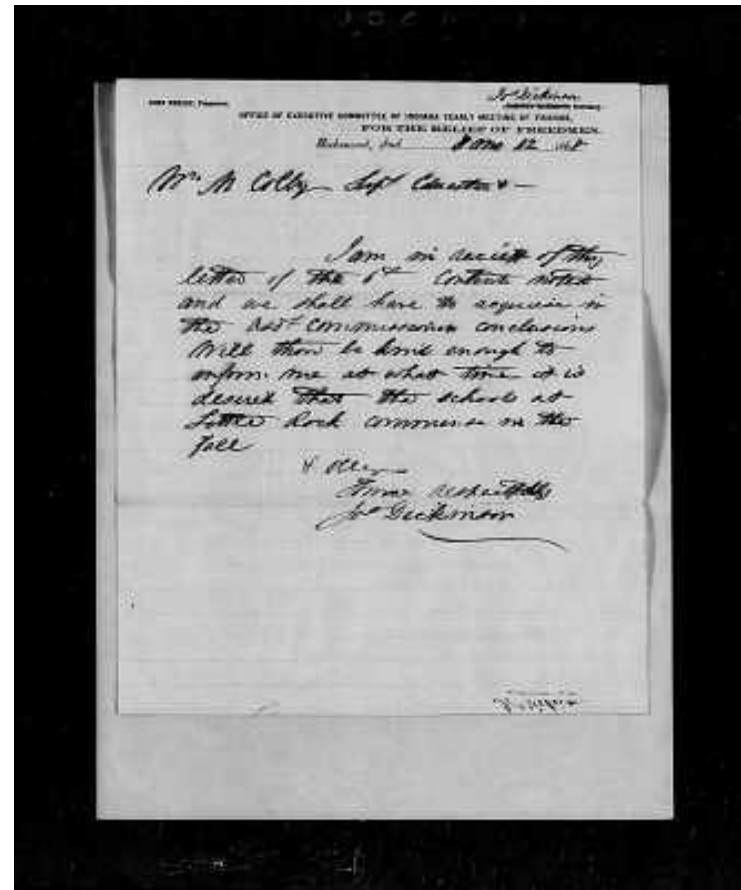 Jos Dickinson
OFFICE OF EXECUTIVE COMMITTEE OF INDIANA YEARLY MEETING OF FRIENDS,
FOR THE RELIEF OF FREEDMEN.
Richmond, Ind 8 mo 12 186
Wm M Colby Supt Education
I am in reciept of thy
letter of the 6th Contents noted
and we shall have to acquiesce in
the Asst Commissioners conclusions
Will thou be kind enough to
inform me at what time it is
desired that the schools at
Little Rock commence in the
fall
& oblige
Thine respectfully
Jos Dickinson